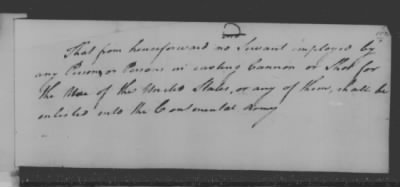 That from henceforward no Servant employed by
any Person, or Persons in casting Cannon or Shot for
the Use of the United States, or any of them, shall be
enlisted into the Continental Army